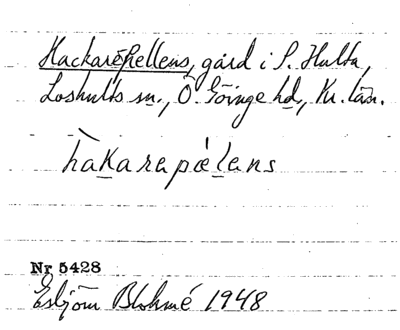 Hackarepellens, gård i S. Hulta,
Loshults sn., Ö. Göinge hd., Kr. län.
hakarapælens
Nr 5428
Esbjörn Blohmé 1948